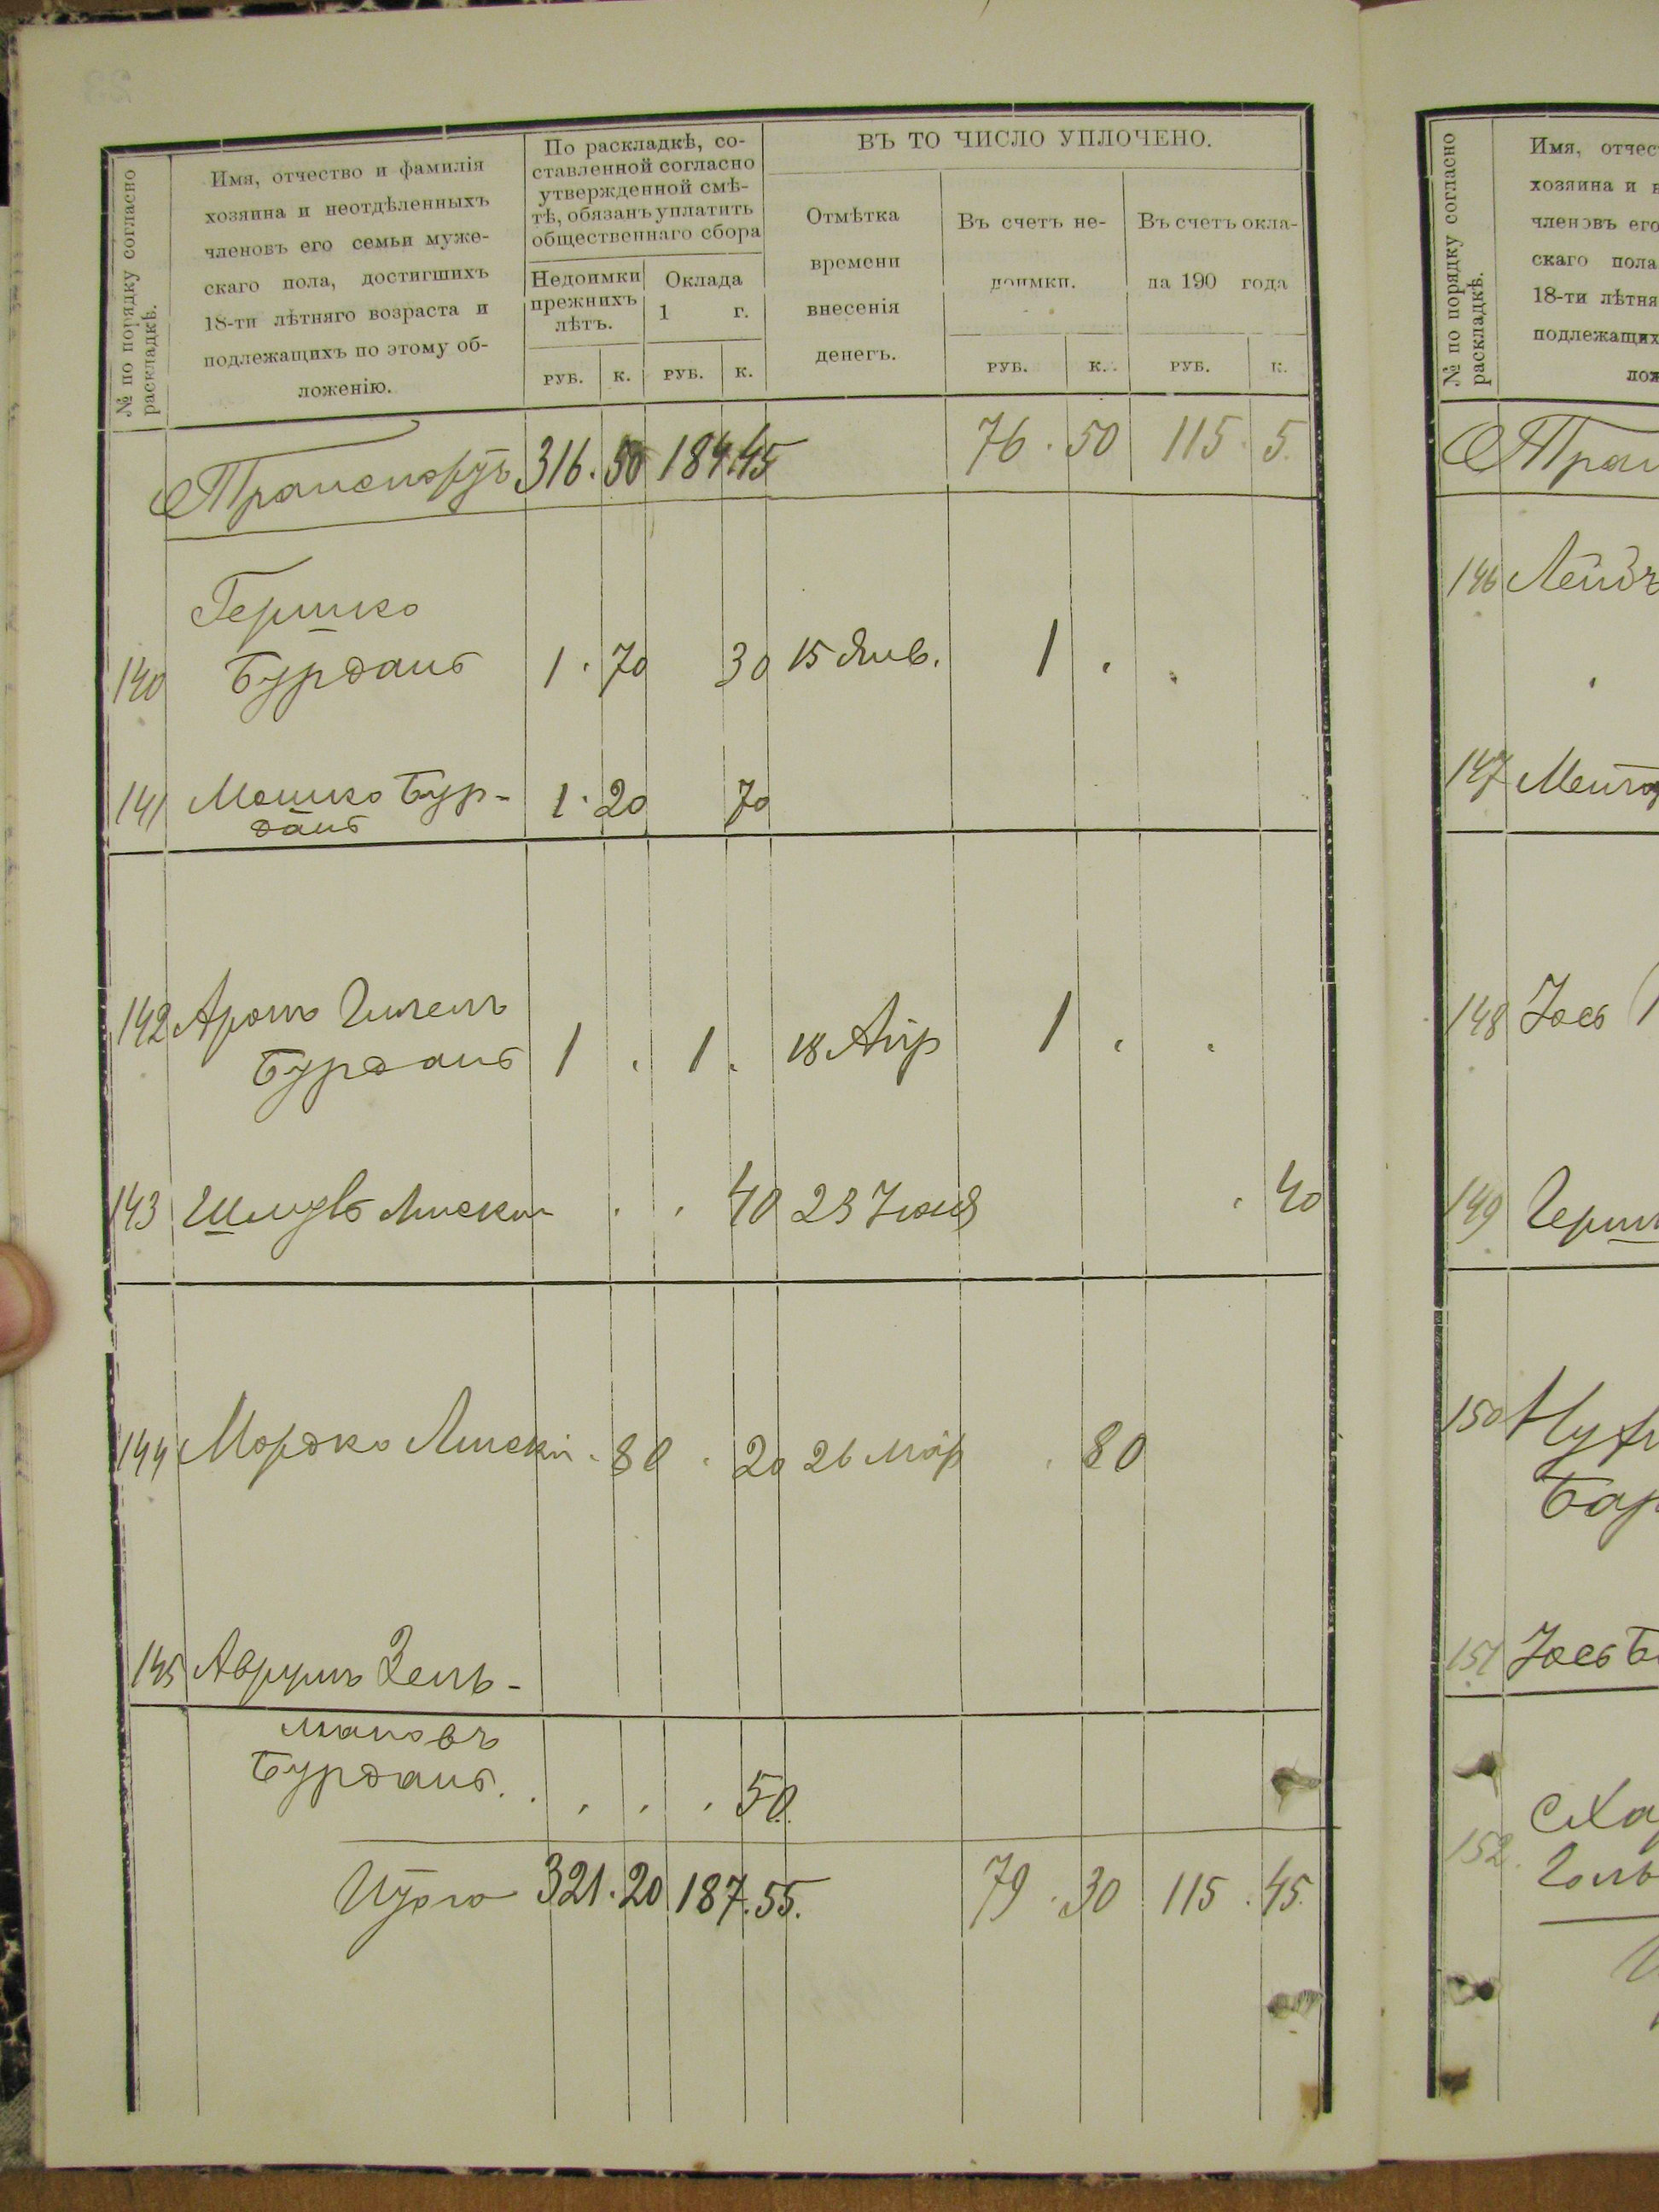 ВЪ ТО ЧИСЛО УПЛОЧЕНО.
№ по порядку согласно
раскладкѣ.
Имя, отчество и фамилія
хозяина и неотдѣленныхъ
членовъ его семьи муже-
скаго пола, достигшихъ
18-ти лѣтняго возраста и
подлежащихъ по этому об-
ложенію.
По раскладкѣ, со-
ставленной согласно
утвержденной смѣ-
тѣ, обязанъ уплатить
общественнаго сбора
Недоимки
прежнихъ
лѣтъ.
Оклада
1 г.
Отмѣтка
времени
внесенія
денегъ.
Въ счетъ не-
доимки.
Въ счетъ окла-
да 190 года
РУБ. К. РУБ. К. РУБ. К. РУБ. К.
Транспортъ 316. 50 184.45 76. 50 115. 5.
Гершко
140 Бурданъ 1. 70 30 15 Янв. 1
141 Мошко Бур- 1. 20 70
данъ
142 Аронъ
Бурданъ 1 . 1 . 18 Апр 1
143 40 23 40
144 Мордко 80 20 26 Мар 80
145 Аврумъ Зель-
мановъ
Бурданъ 50
Итого 321. 20 187. 55. 79. 30 115. 45.
№ по порядку согласно
раскладкѣ.
Имя, отчес
хозяина и н
членовъ его
скаго пола
18-ти лѣтня
подлежащихъ
лож
Тран
146
147
148 Іось
149 Герш
150
Бар
151 Іось Б
152